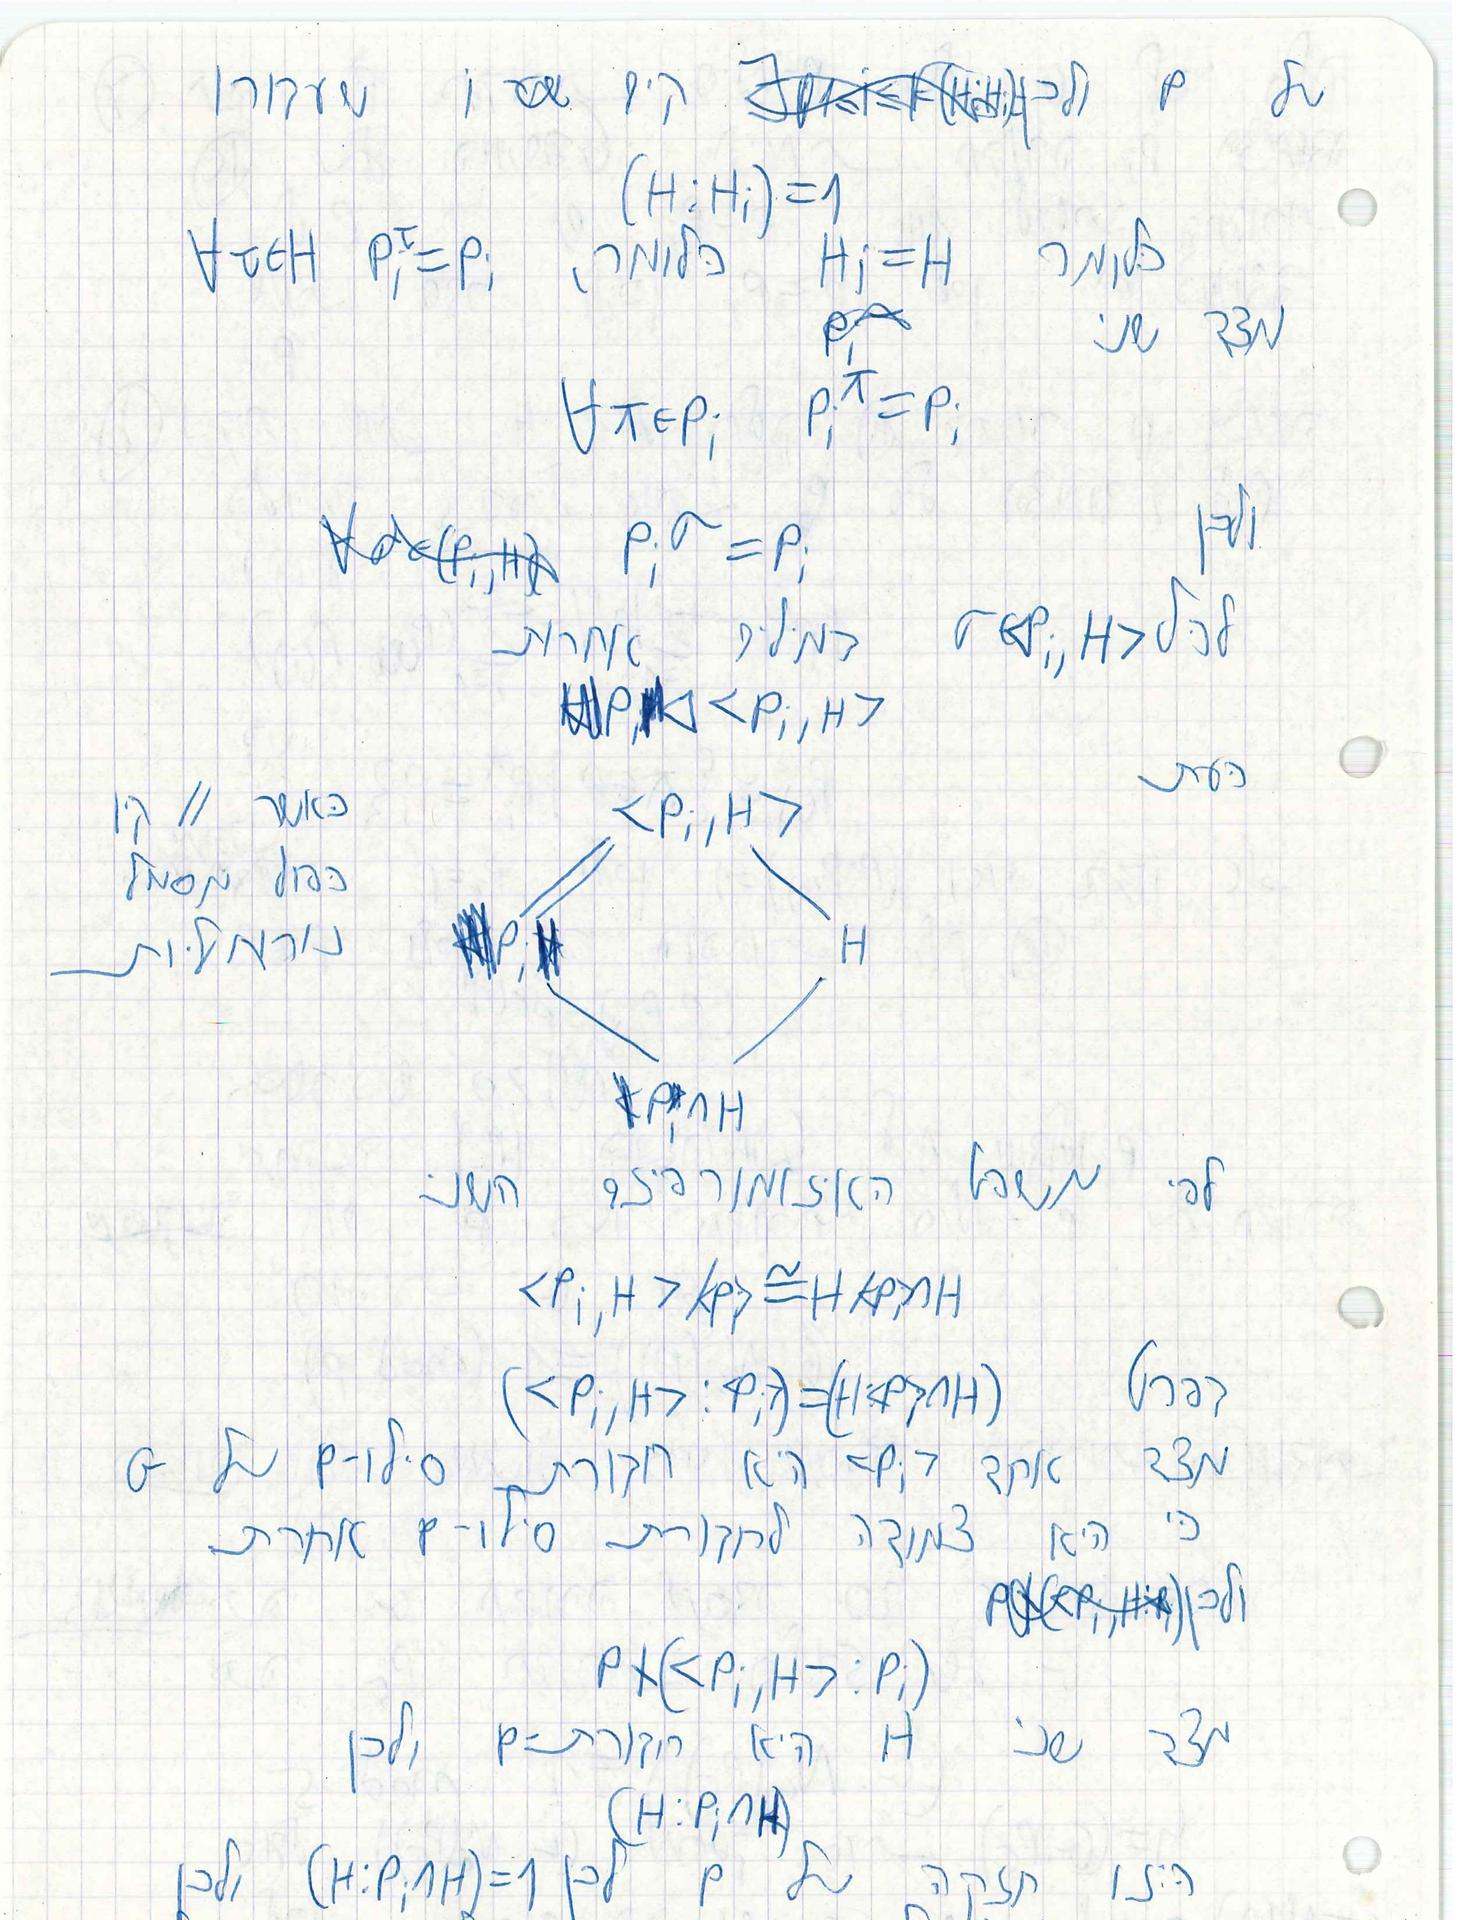 של p ולכן קיים i שעבורו
(H:Hᵢ)=1
כלומר Hᵢ=H כלומר, Pᵢ^τ=Pᵢ ∀τ∈H
מצד שני
∀π∈Pᵢ Pᵢ^π=Pᵢ
ולכן Pᵢ^σ=Pᵢ
לכל σ∈<Pᵢ,H> במילים אחרות
Pᵢ◁<Pᵢ,H>
כעת
<Pᵢ,H> כאשר // קו
כפול מסמל
Pᵢ H נורמליות
Pᵢ∩H
לפי משפט האיזומורפיזם השני
<Pᵢ,H>/<Pᵢ>≅H/<Pᵢ>∩H
בפרט (<Pᵢ,H>:<Pᵢ>)=(H:<Pᵢ>∩H)
מצד אחד <Pᵢ> היא חבורת סילו-p של G
כי היא צמודה לחבורת סילו-p אחרת
ולכן
p∤(<Pᵢ,H>:Pᵢ)
מצד שני H היא חבורת-p ולכן
(H:Pᵢ∩H)
הינו חזקה של p לכן (H:Pᵢ∩H)=1 ולכן